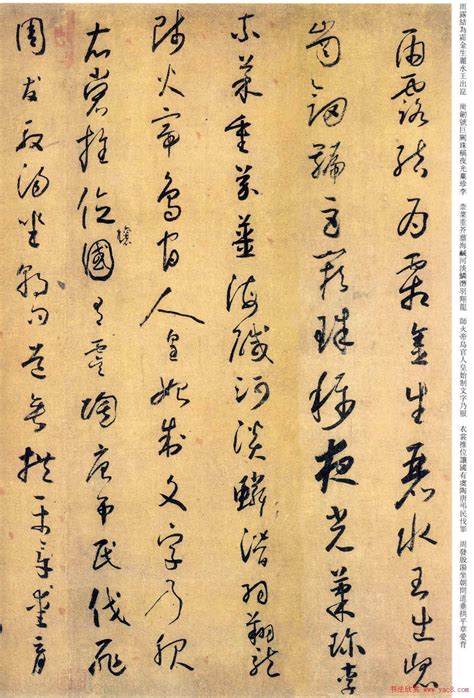 雨露結為霜金生麗水玉出崑 崗劍號巨闕珠稱夜光菓珍李 柰菜重芥薑海鹹河淡鱗潛羽翔龍 師火帝鳥官人皇始制文字乃服 衣裳推位讓國有虞陶唐弔民伐罪 周發殷湯坐朝問道垂拱平章愛育
雨露結為霜金生麗水玉出崑
崗劍號巨闕珠稱夜光菓珍李
柰菜重芥薑海鹹河淡鱗潛羽翔龍
師火帝鳥官人皇始制文字乃服
衣裳推位讓國有虞陶唐弔民伐罪
周發殷湯坐朝問道垂拱平章愛育
书法欣赏 www.yac8.com